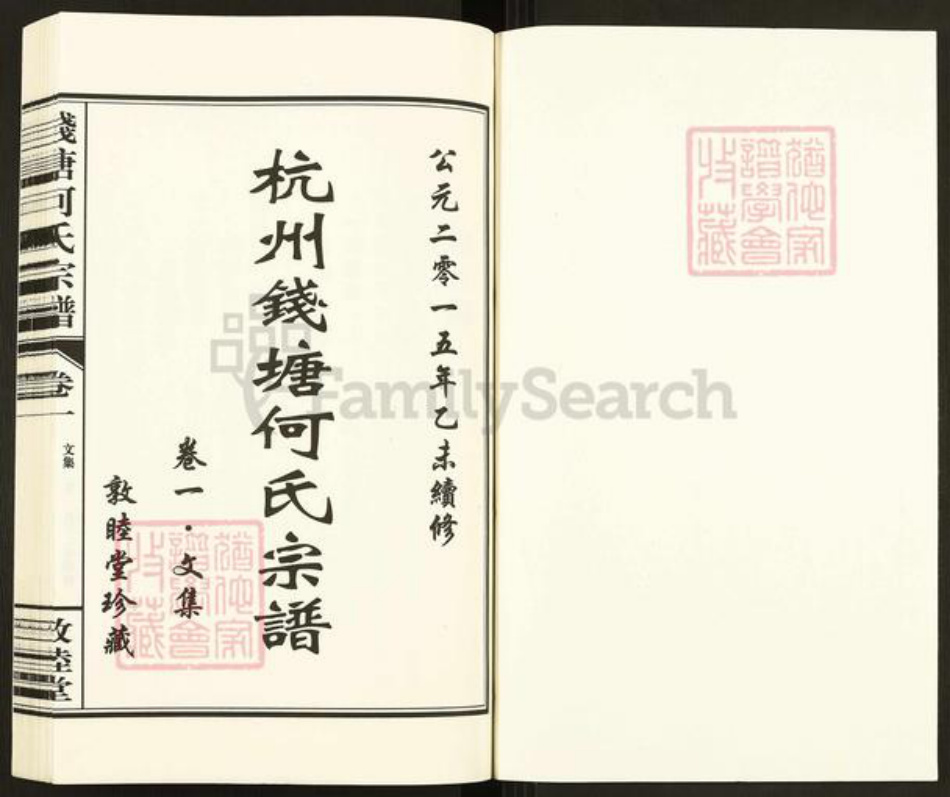 公元二零一五年乙未續修
杭州錢塘何氏宗譜
卷一·文集
敦睦堂珍藏
錢塘何氏宗譜
卷一
文集
敦睦堂
譜學會
收藏
FamilySearch